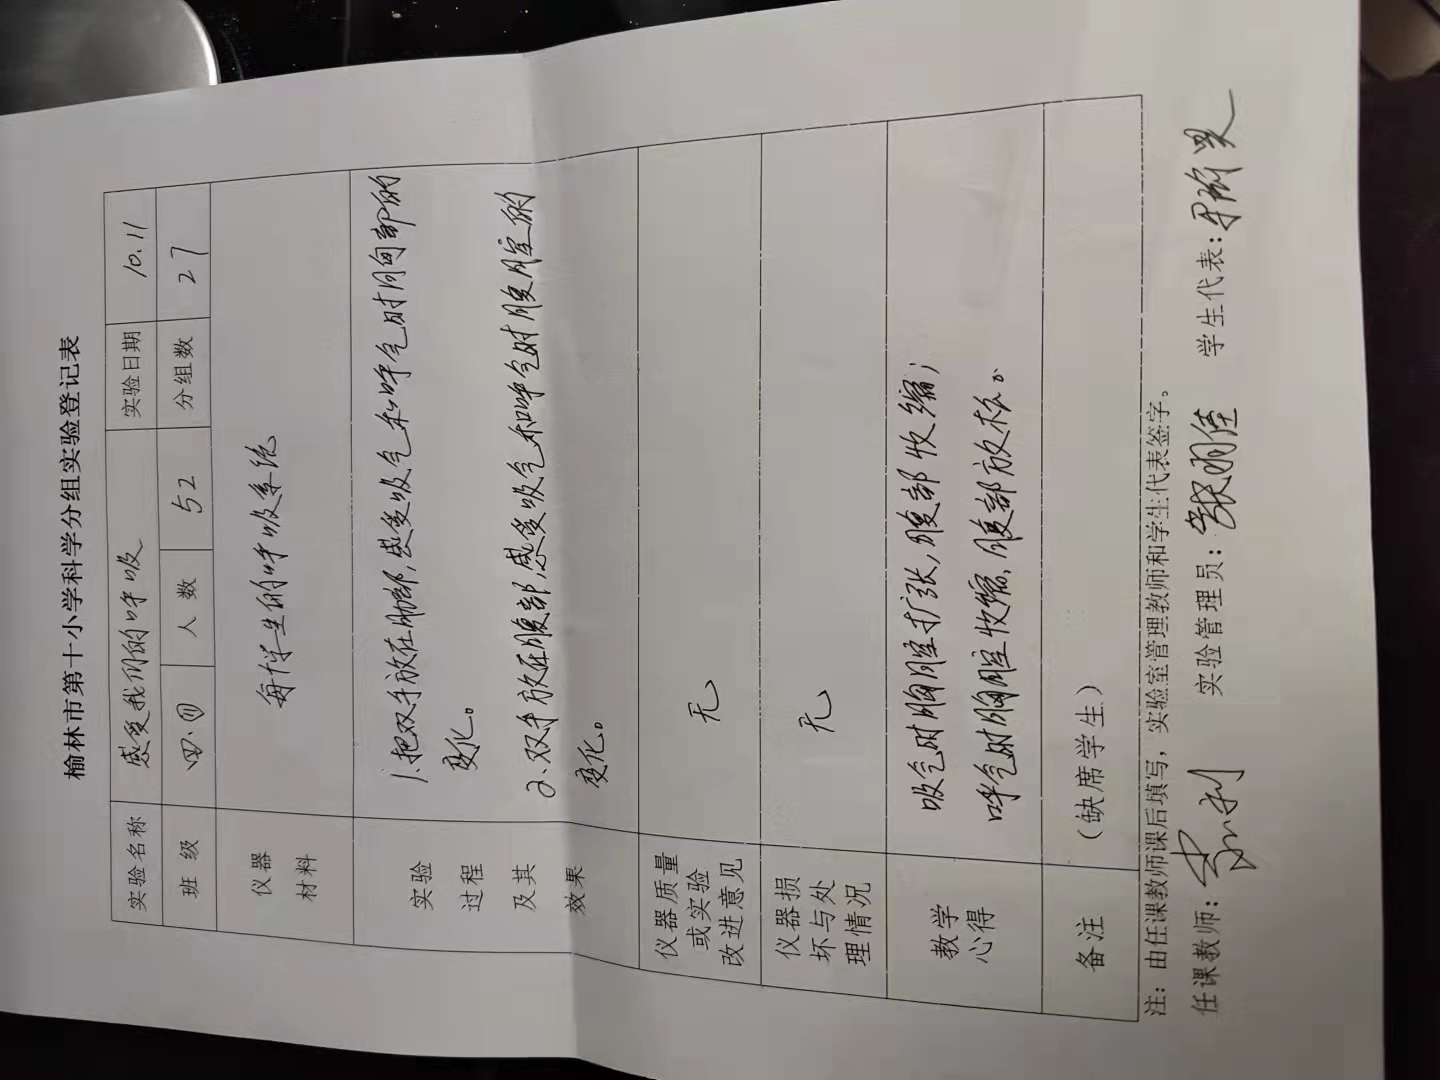 榆林市第十小学科学分组实验登记表
实验名称 感受我们的呼吸 实验日期 10.11
班级 四.四 人数 52 分组数 27
仪器
材料
每个学生的呼吸系统
实验
过程
及其
效果
1.把双手放在肋部,感受吸气和呼气时胸部的
变化。
2.双手放在腹部,感受吸气和呼气时腹腔的
变化。
仪器质量
或实验
改进意见
无
仪器损
坏与处
理情况
无
教学
心得
吸气时胸腔扩张,腹部收缩;
呼气时胸腔收缩、腹部放松。
备注 (缺席学生)
注：由任课教师课后填写，实验室管理教师和学生代表签字。
任课教师: 实验管理员: 张丽佳 学生代表: